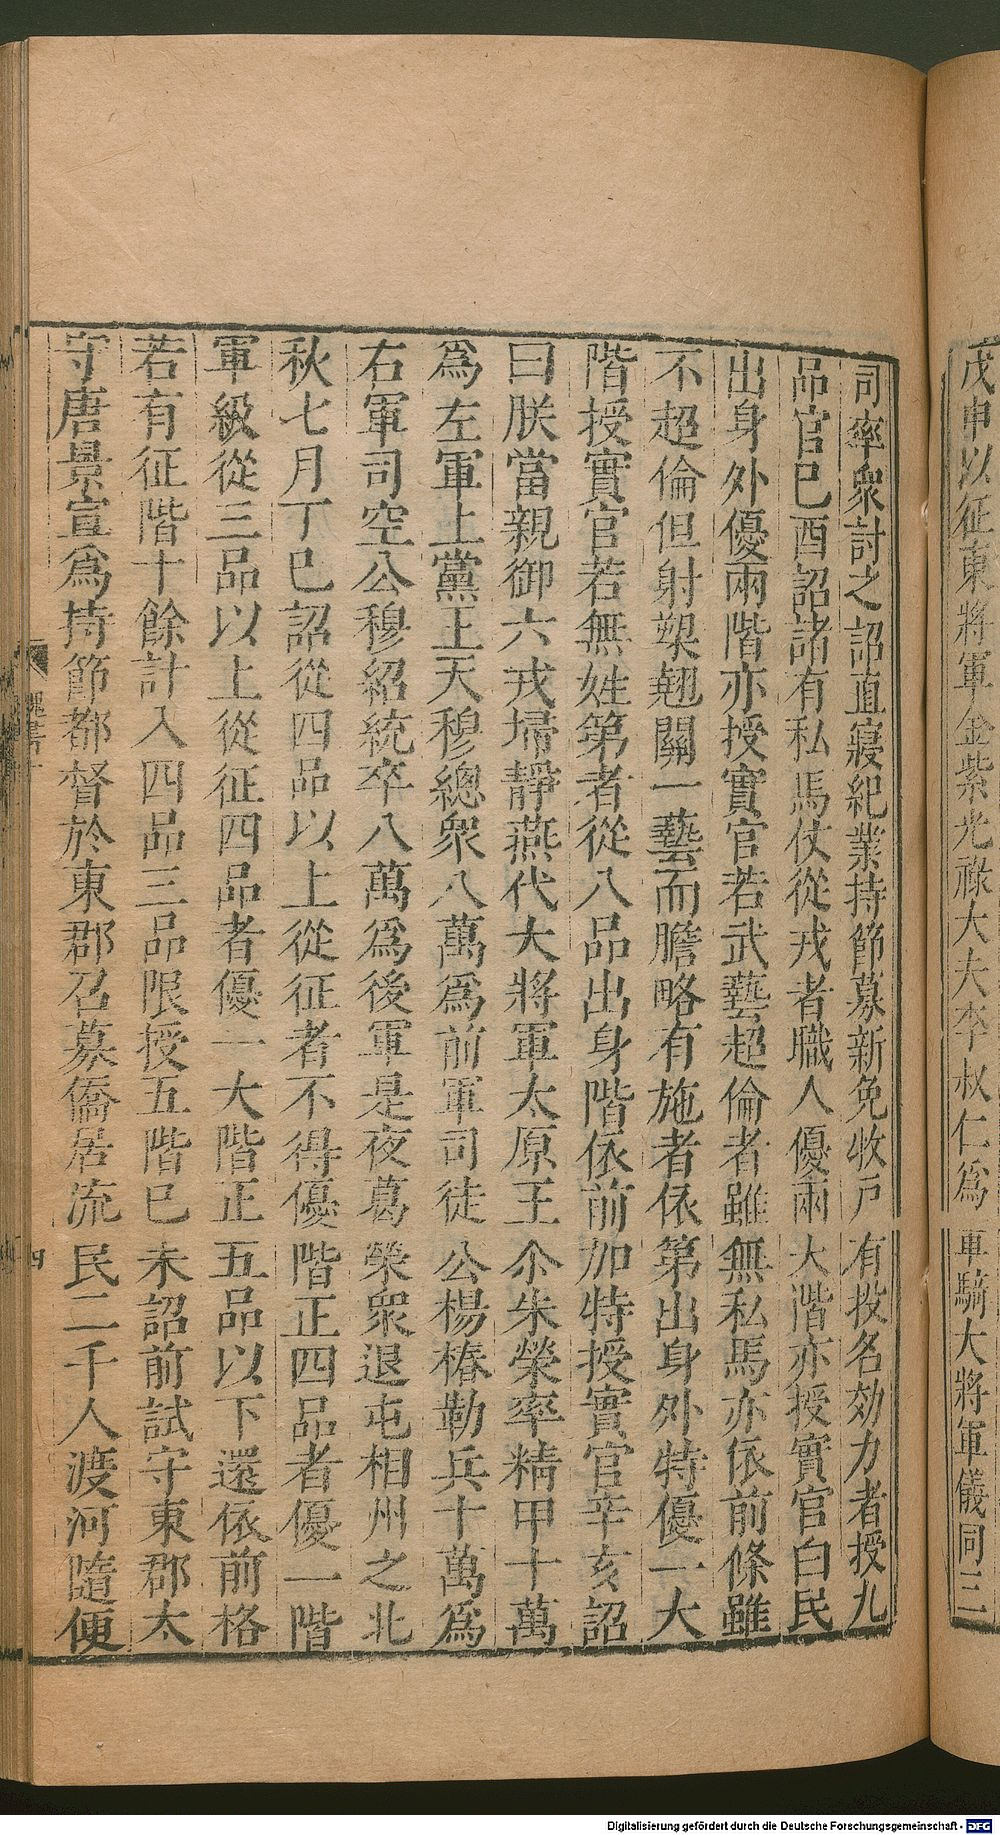 戊申以征東將軍金紫光祿大夫李叔仁爲車騎大將軍儀同三
司率衆討之詔直寢紀業持節募新免收戸有投名効力者授九
品官已酉詔諸有私馬仗從戎者職人優兩大階亦授實官白民
出身外優兩階亦授實官若武藝超倫者雖無私馬亦依前條雖
不超倫但射槊翹關一藝而膽略有施者依第出身外特優一大
階授實官若無姓第者從八品出身階依前加特授實官辛亥詔
曰朕當親御六戎掃靜燕代大將軍太原王尒朱榮率精甲十萬
爲左軍上黨王天穆總衆八萬爲前軍司徒公楊椿勒兵十萬爲
右軍司空公穆紹統卒八萬爲後軍是夜葛榮衆退屯相州之北
秋七月丁巳詔從四品以上從征者不得優階正四品者優一階
軍級從三品以上從征四品者優一大階正五品以下還依前格
若有征階十餘計入四品三品限授五階巳未詔前試守東郡太
守唐景宣爲持節都督於東郡召募僑居流民二千人渡河隨便
魏書十
四
Digitalisierung gefördert durch die Deutsche Forschungsgemeinschaft - DFG